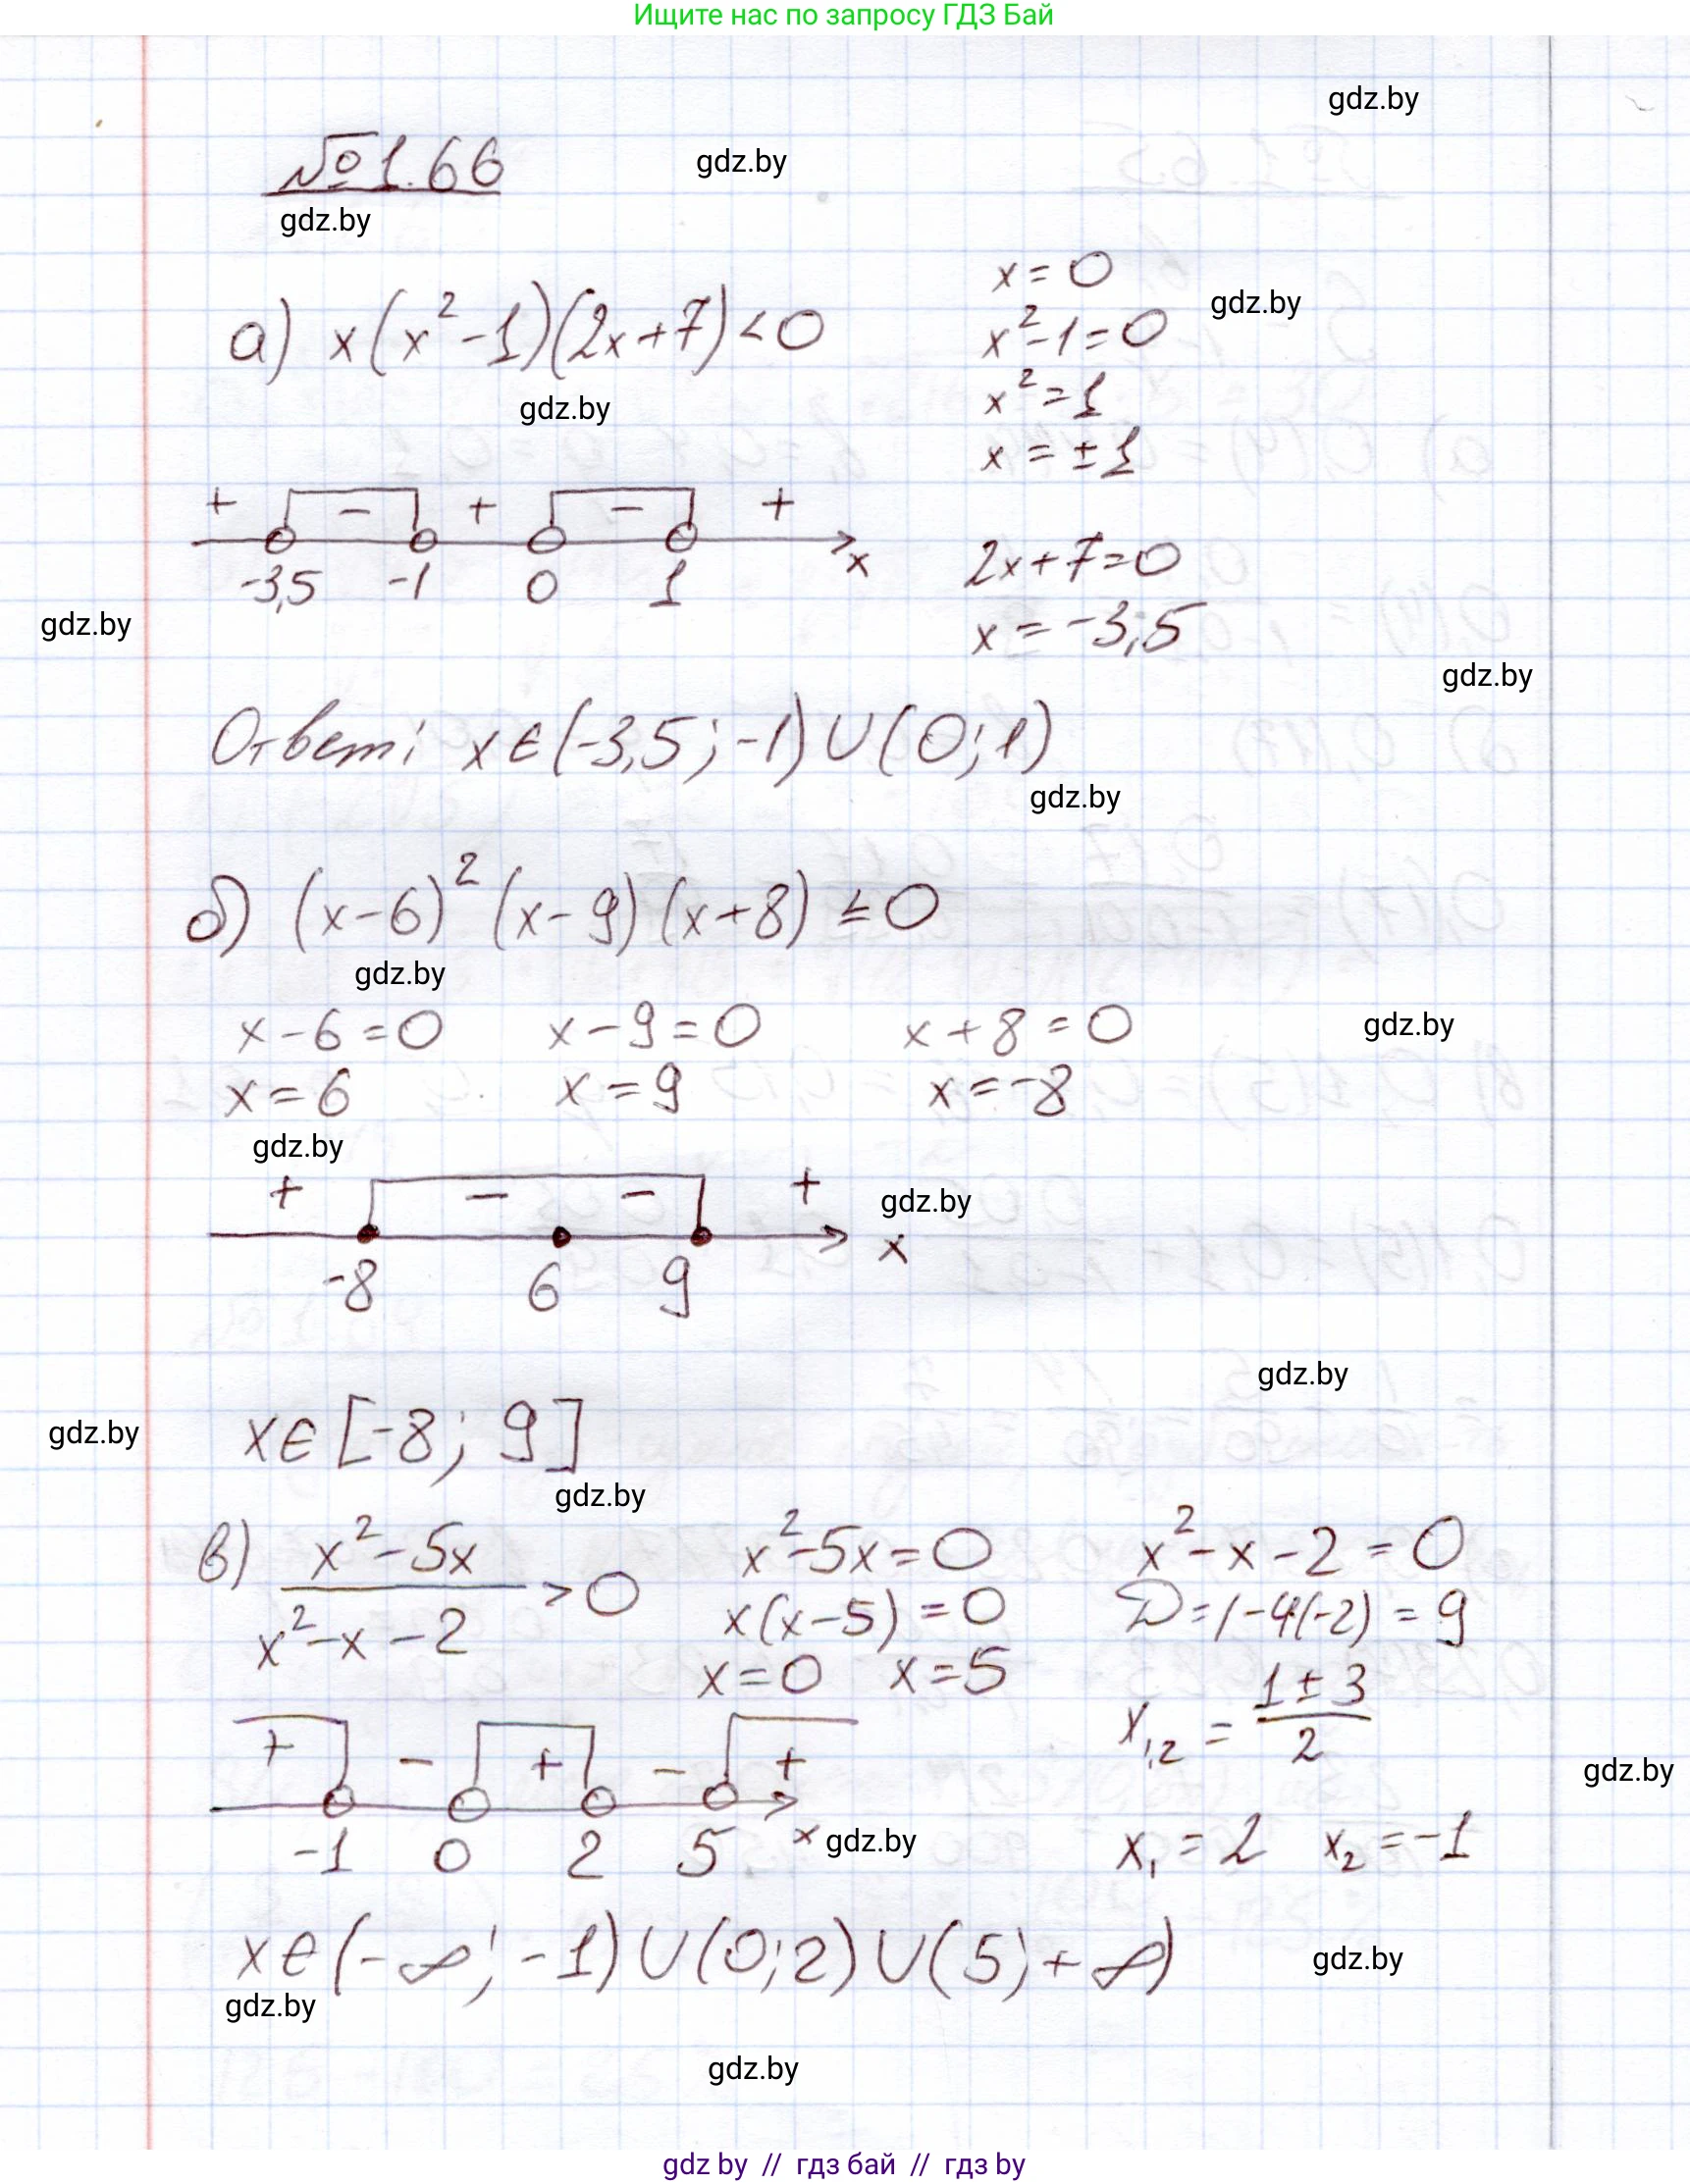 Ищите нас по запросу ГДЗ Бай
gdz.by
№1.66
gdz.by
gdz.by
x = 0
gdz.by
а) x(x²-1)(2x+7)<0
x²-1=0
x²=1
gdz.by
x = ±1
+ - + - +
-3,5 -1 0 1 x
2x+7=0
x = -3,5
gdz.by
gdz.by
Ответ: x∈(-3,5; -1)∪(0; 1)
gdz.by
б) (x-6)²(x-9)(x+8)≤0
gdz.by
x-6=0 x-9=0 x+8=0
gdz.by
x=6 x=9 x=-8
gdz.by
+ - - +
gdz.by
-8 6 9 x
gdz.by
x∈[-8; 9]
gdz.by
gdz.by
в) x²-5x / x²-x-2 >0
x²-5x=0
x(x-5)=0
x=0 x=5
x²-x-2=0
D=1-4(-2)=9
x₁,₂ = 1±3 / 2
gdz.by
+ - + - +
-1 0 2 5 x
gdz.by
x₁=2 x₂=-1
x∈(-∞; -1)∪(0; 2)∪(5; +∞)
gdz.by
gdz.by
gdz.by
gdz by // гдз бай // гдз by